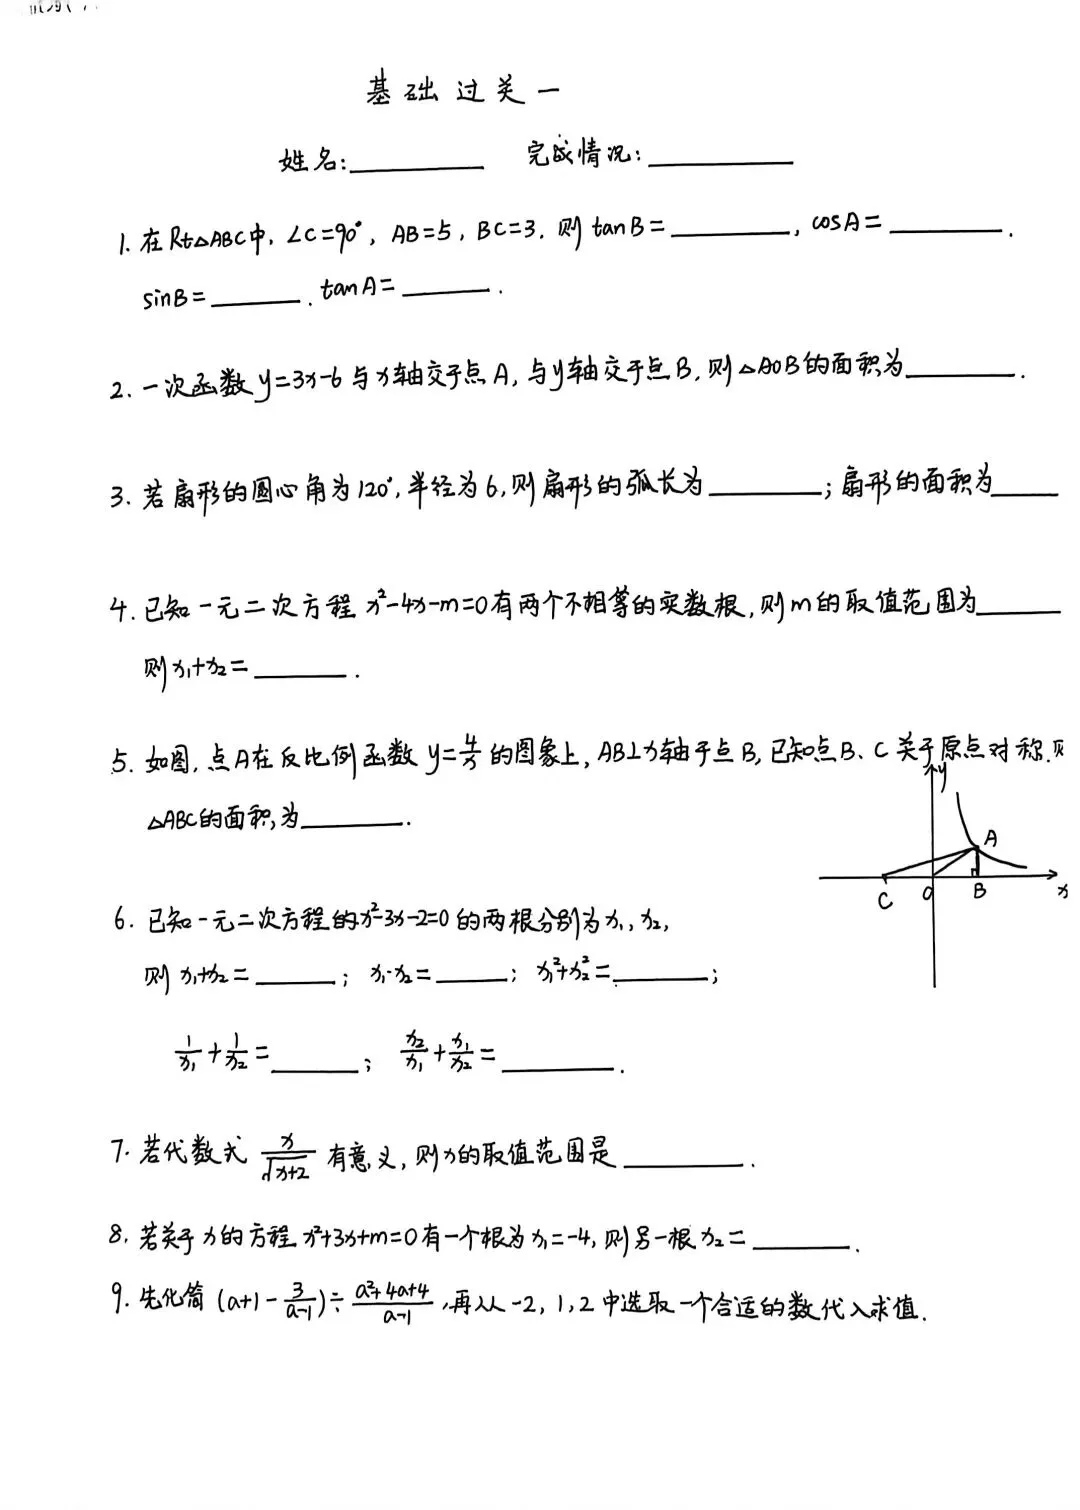 基础过关一
姓名:________ 完成情况:________
1. 在Rt△ABC中,∠C=90°,AB=5,BC=3.则tanB=________,cosA=________.
sinB=________.tanA=________.
2. 一次函数y=3x-6与x轴交于点A,与y轴交于点B,则△AOB的面积为________.
3. 若扇形的圆心角为120°,半径为6,则扇形的弧长为________;扇形的面积为________
4. 已知一元二次方程x²-4x-m=0有两个不相等的实数根,则m的取值范围为________
则x₁+x₂=________.
5. 如图,点A在反比例函数y=4/x的图象上,AB⊥x轴于点B,已知点B、C关于原点对称.则
△ABC的面积为________.
y
A
C O B x
6. 已知一元二次方程的x²-3x-2=0的两根分别为x₁,x₂,
则x₁+x₂=________;x₁·x₂=________;x₁²+x₂²=________;
1/x₁+1/x₂=________;x₂/x₁+x₁/x₂=________.
7. 若代数式x/√(x+2)有意义,则x的取值范围是________.
8. 若关于x的方程x²+3x+m=0有一个根为x₁=-4,则另一根x₂=________.
9. 先化简(a+1-3/(a-1))÷(a²+4a+4)/(a-1),再从-2,1,2中选取一个合适的数代入求值.